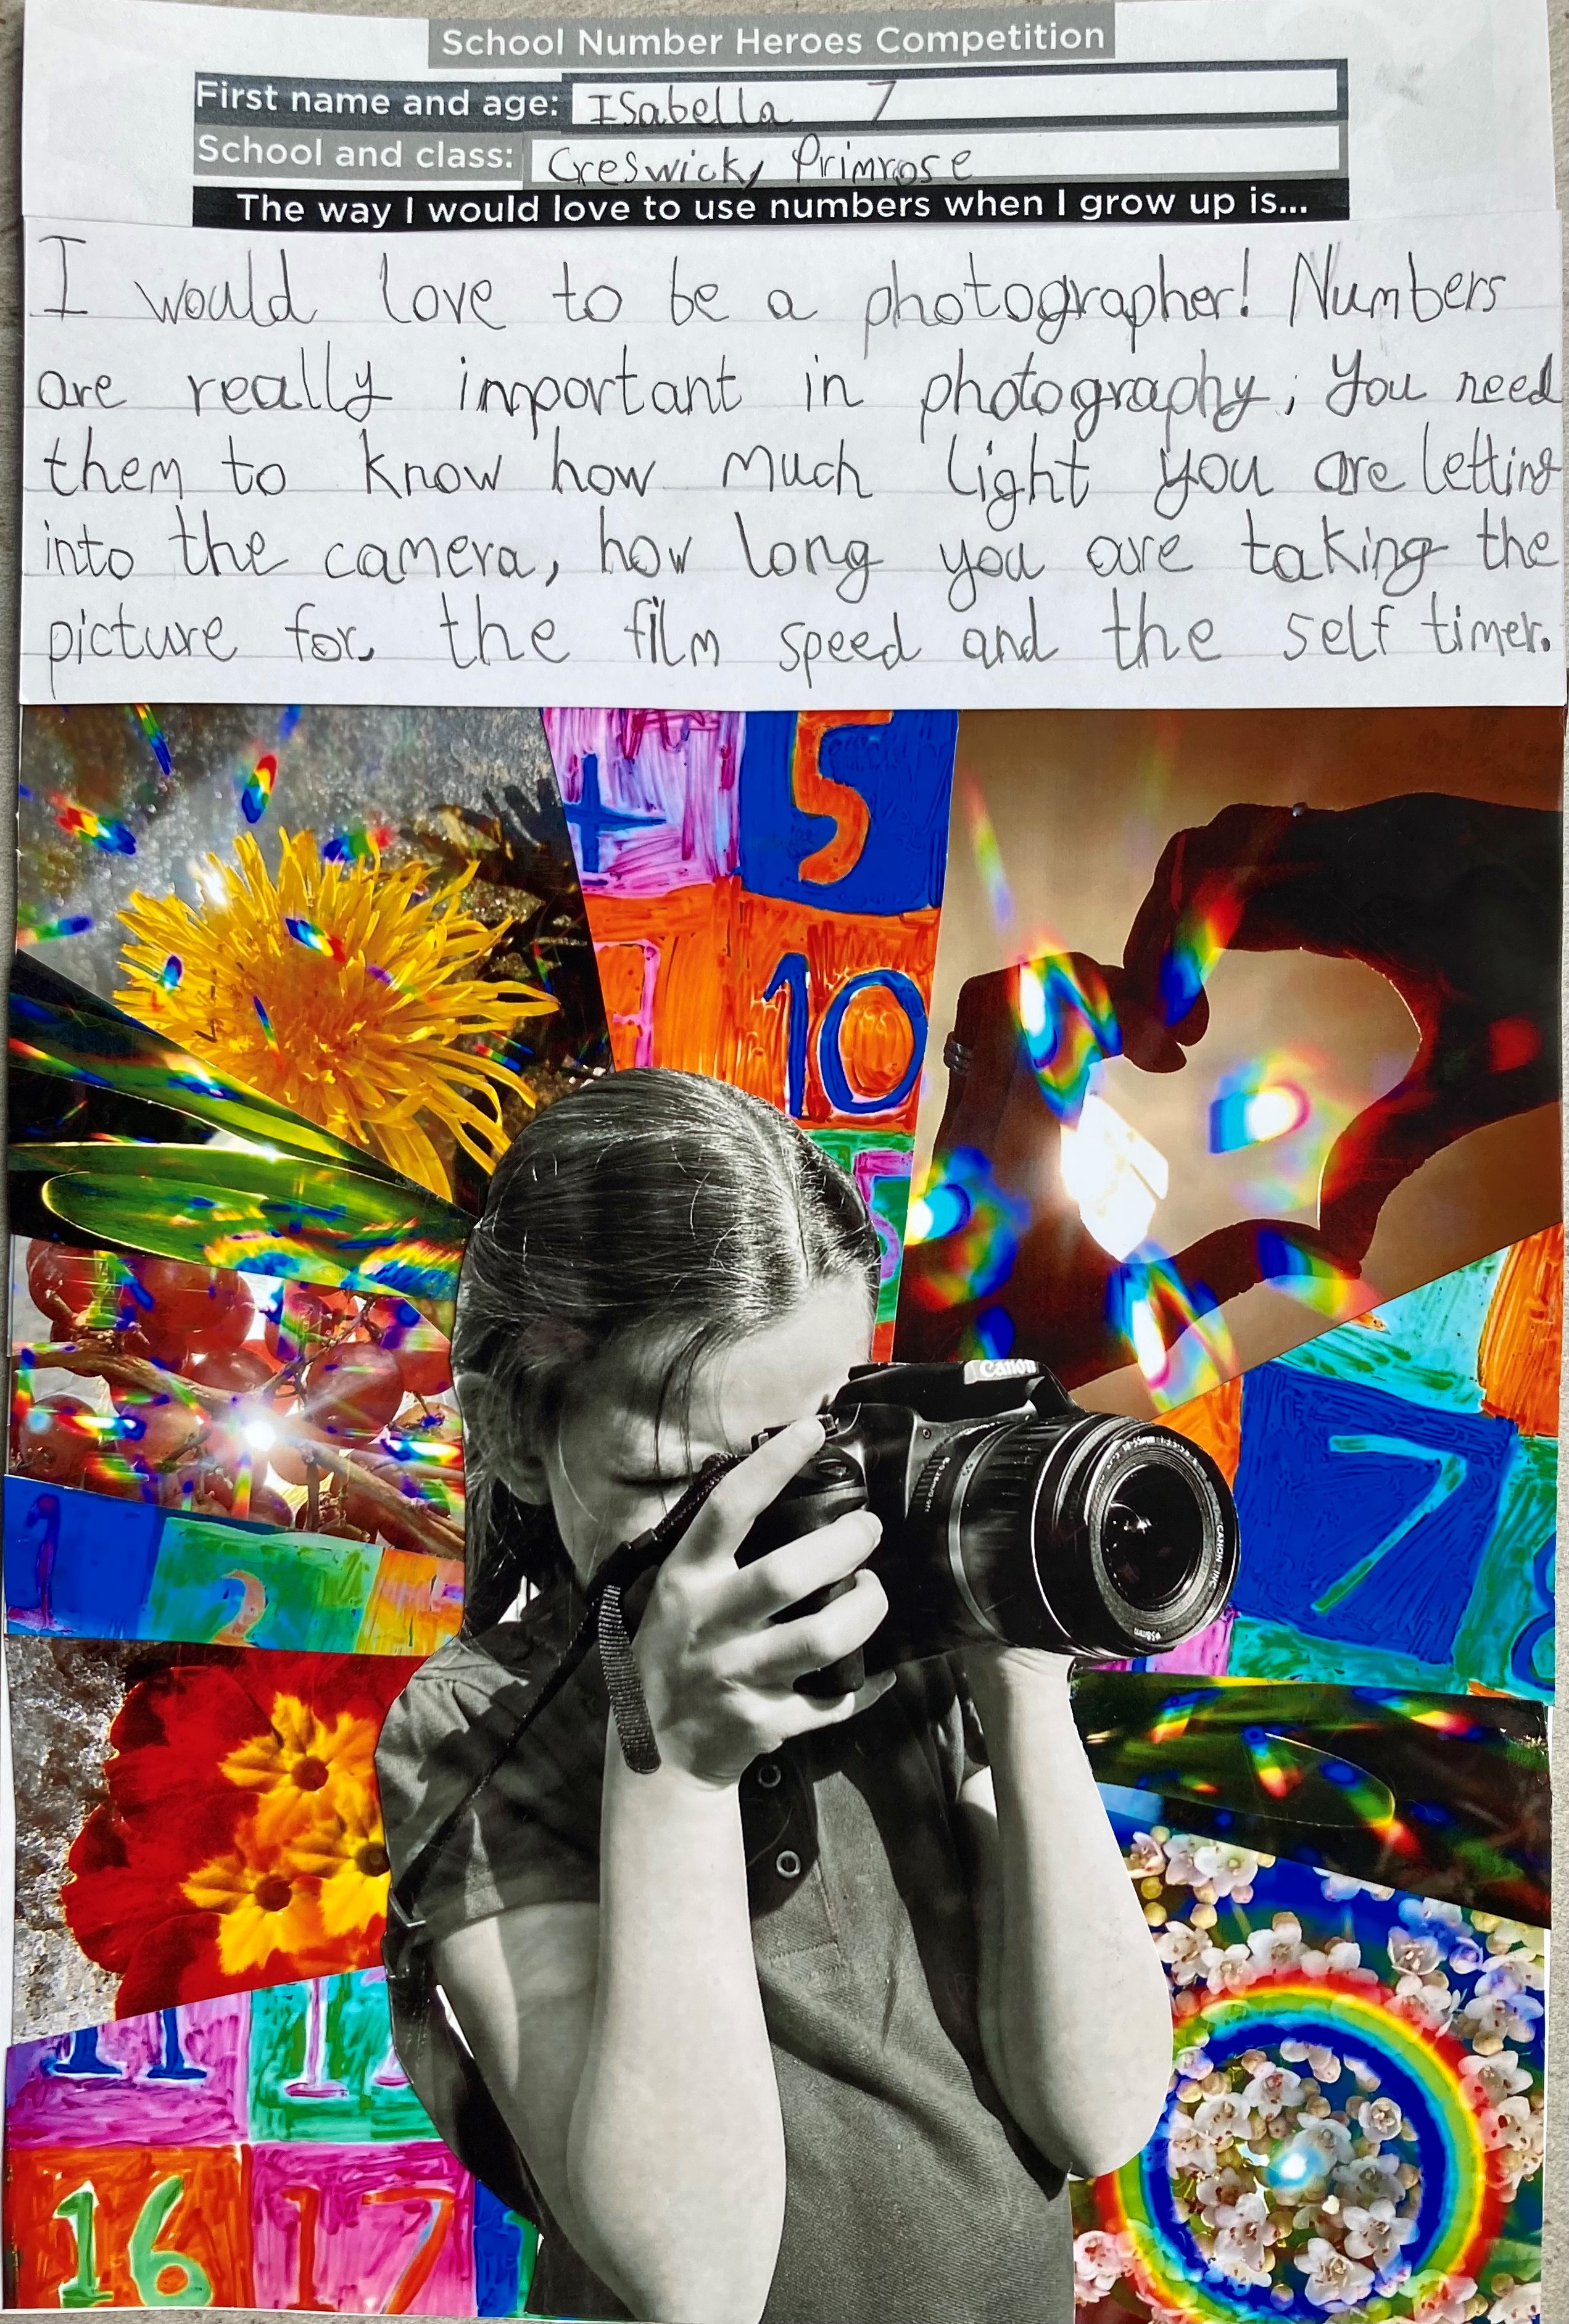 School Number Heroes Competition
First name and age: Isabella 7
School and class: Creswick, Primrose
The way I would love to use numbers when I grow up is...
I would love to be a photographer! Numbers
are really inportant in photography; You need
them to know how much light you are letting
into the camera, how long you are taking the
picture for. the film speed and the self timer.
+ 5
10
5
Canon
7
8
1 2
CANON INC
ø58mm
11
16 17